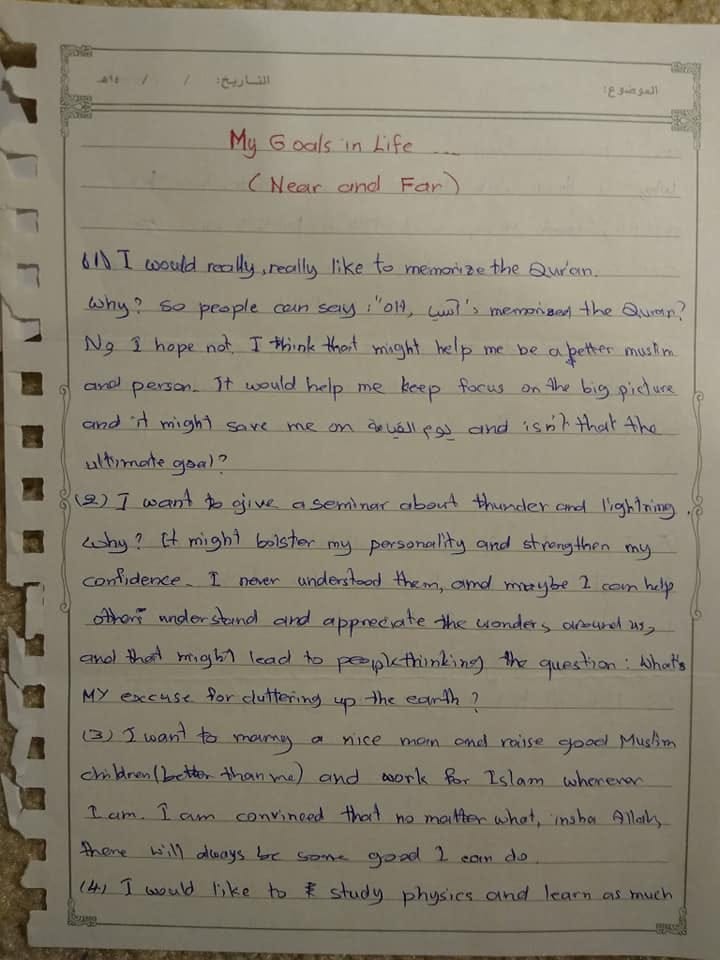 الموضوع: التاريخ: / / ١٤هـ
My Goals in Life ...
(Near and Far)
(1) I would really, really like to memorize the Qur'an.
Why? So people can say: "Oh, آسيا's memorized the Quran?
No, I hope not. I think that might help me be a better muslim
and person. It would help me keep focus on the big picture
and it might save me on يوم القيامة and isn't that the
ultimate goal?
(2) I want to give a seminar about thunder and lightning.
Why? It might bolster my personality and strengthen my
confidence. I never understood them, and maybe I can help
others understand and appreciate the wonders around us,
and that might lead to people thinking the question: What's
MY excuse for cluttering up the earth?
(3) I want to marry a nice man and raise good Muslim
children (better than me) and work for Islam wherever
I am. I am convinced that no matter what, insha Allah,
there will always be some good I can do.
(4) I would like to study physics and learn as much